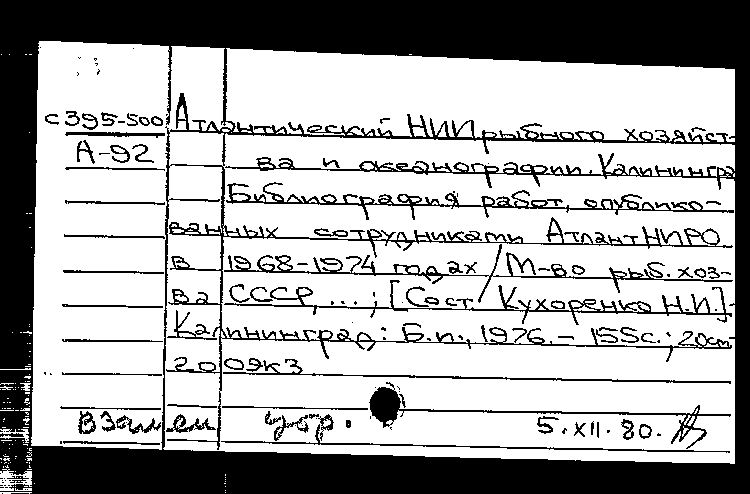 с395-500 Атлантический НИИ рыбного хозяйст-
А-92 ва и океанографии. Калинингра
Библиография работ, опублико-
ванных сотрудниками АтлантНИРО
в 1968-1974 годах / М-во рыб. хоз-
ва СССР, ...; [Сост. Кухоренко Н.И.] -
Калининград: Б.и., 1976. - 155с.; 20см
20 09к3
Взамен утр. 5.XII.80.